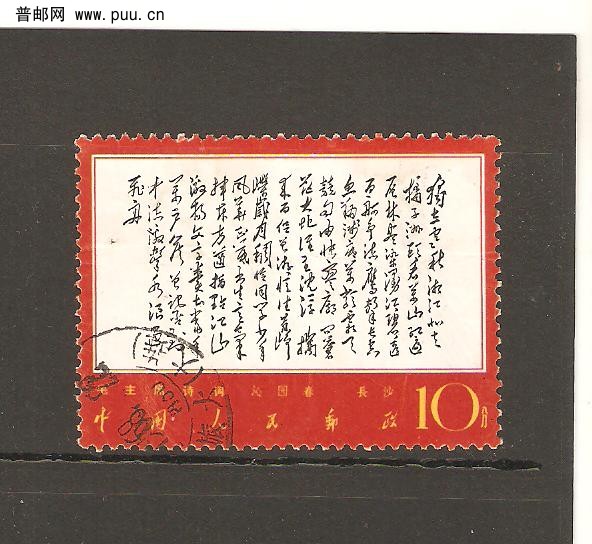 普邮网 www.puu.cn
独立寒秋湘江北去
橘子洲头看万山红遍
层林尽染漫江碧透
百舸争流鹰击长空
鱼翔浅底万类霜天
竞自由怅寥廓问苍
茫大地谁主沉浮 携
来百侣曾游忆往昔峥
嵘岁月稠恰同学少年
风华正茂书生意气
挥斥方遒指点江山
激扬文字粪土当年
万户侯曾记否到
中流击水浪遏
飞舟
毛主席诗词 沁园春 长沙
中国人民邮政 10分